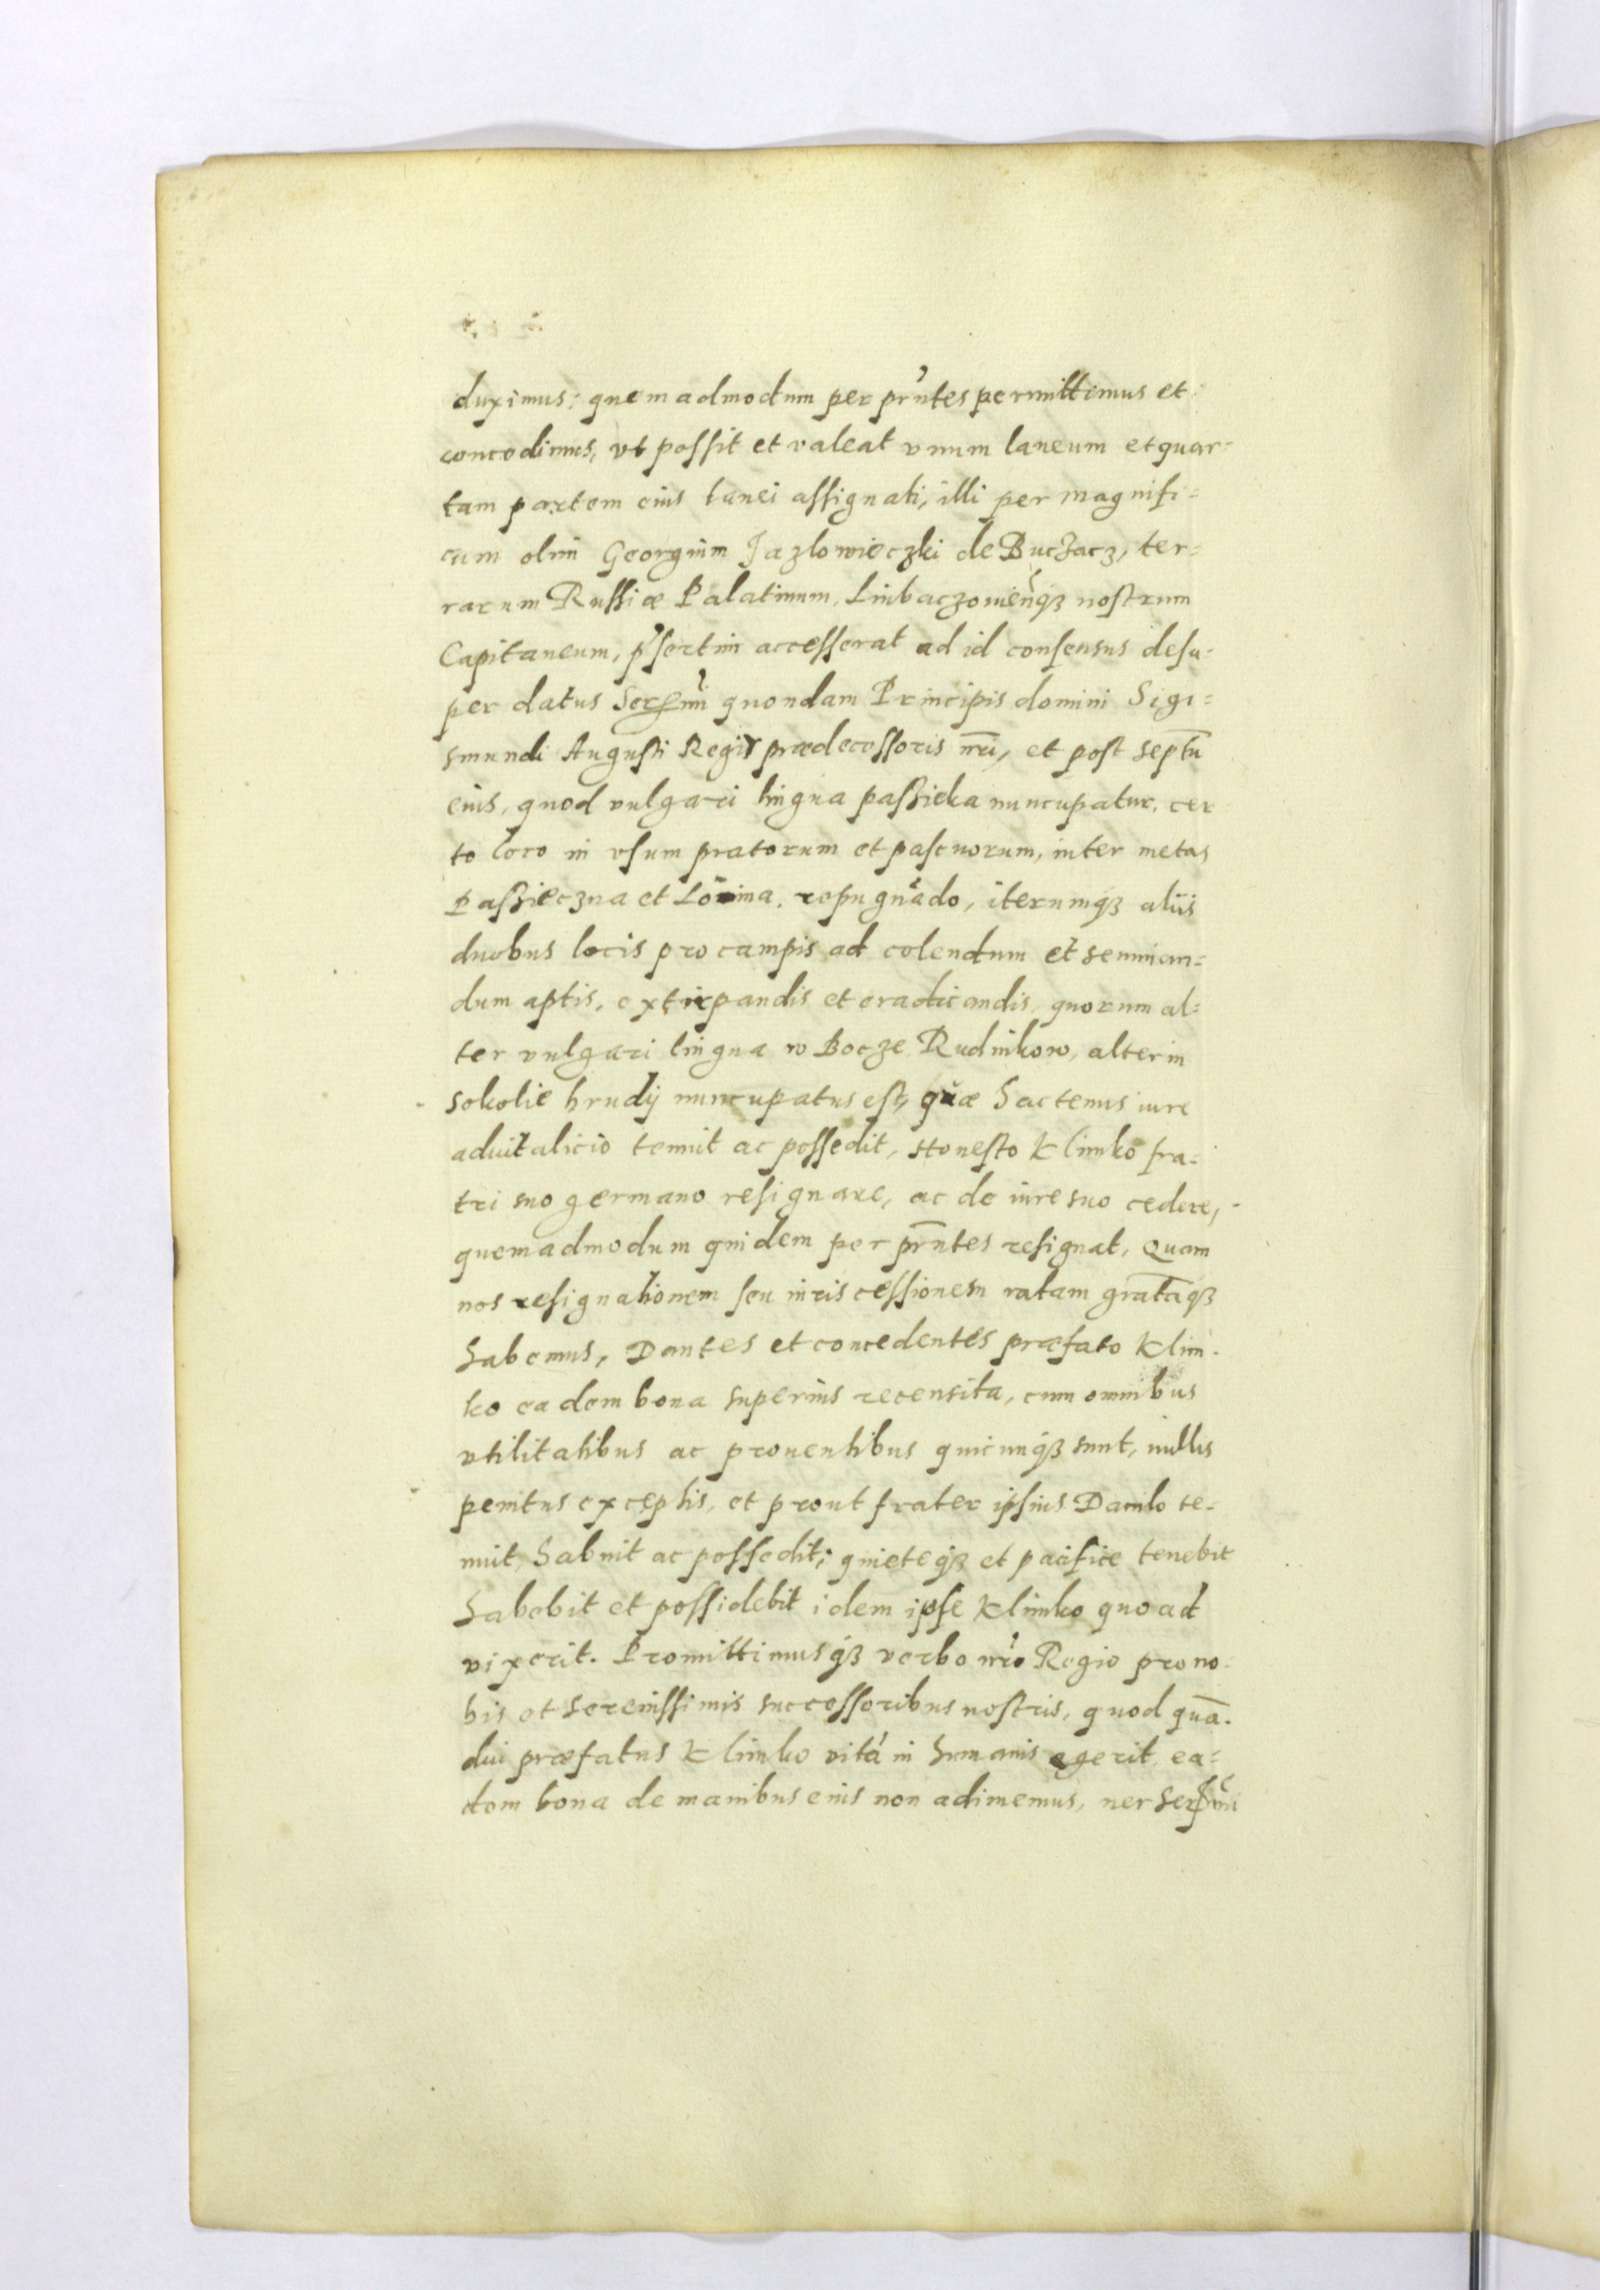 duximus: quemadmodum per pr̃ntes permittimus et
concedimus, vt possit et valeat vnum laneum et quar-
tam partem eius lanei assignati, illi per magnifi-
cum olim Georgium Jazlowieczki de Buczacz, ter-
rarum Russiæ Palatinum, Liubaczowieñq3 nostrum
Capitaneum, p̃sertim accesserat ad id consensus desu-
per datus Ser̃mi quondam Principis domini Sigi-
smundi Augusti Regis prædecessoris nr̃i, et post septũ
eius, quod vulgari lingua passieka nuncupatur, cer
to loco in vsum pratorum et pascuorum, inter metas
Passieczna et Lomna, repugnãdo, iterumq3 aliis
duobus locis pro campis ad colendum et seminan-
dum aptis, extirpandis et eradicandis, quorum al-
ter vulgari lingua w Bocze Rudnikow, alter in
sokolie hrudij nuncupatus est, quæ hactenus iure
aduitalicio tenuit ac possedit, Honesto Klimko fra-
tri suo germano resignare, ac de iure suo cedere,
quemadmodum quidem per pr̃ntes resignat, Quam
nos resignationem seu iuris cessionem ratam gratãq3
habemus, Dantes et concedentes præfato Klim-
ko eadem bona superius recensita, cum omnibus
vtilitatibus ac prouentibus quicunq3 sunt, nullis
penitus exceptis, et prout frater ipsius Danilo te-
nuit, habuit ac possedit; quieteq3 et pacifice tenebit
habebit et possidebit idem ipse Klimko quoad
vixerit. Promittimusq3 verbo nr̃o Regio pro no-
bis et serenissimis successoribus nostris, quod quã-
diu præfatus Klimko vitá in humanis egerit, ea-
dem bona de manibus eius non adimemus, nec Ser̃mi